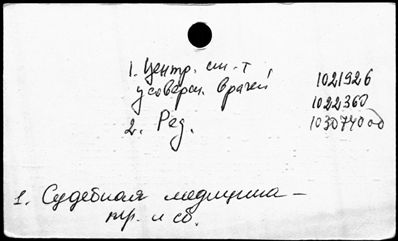 1. Центр. ин-т
усоверш. врачей
2. Ред.
1021926
1022360
1030740 од
1. Судебная медицина —
тр. и сб.